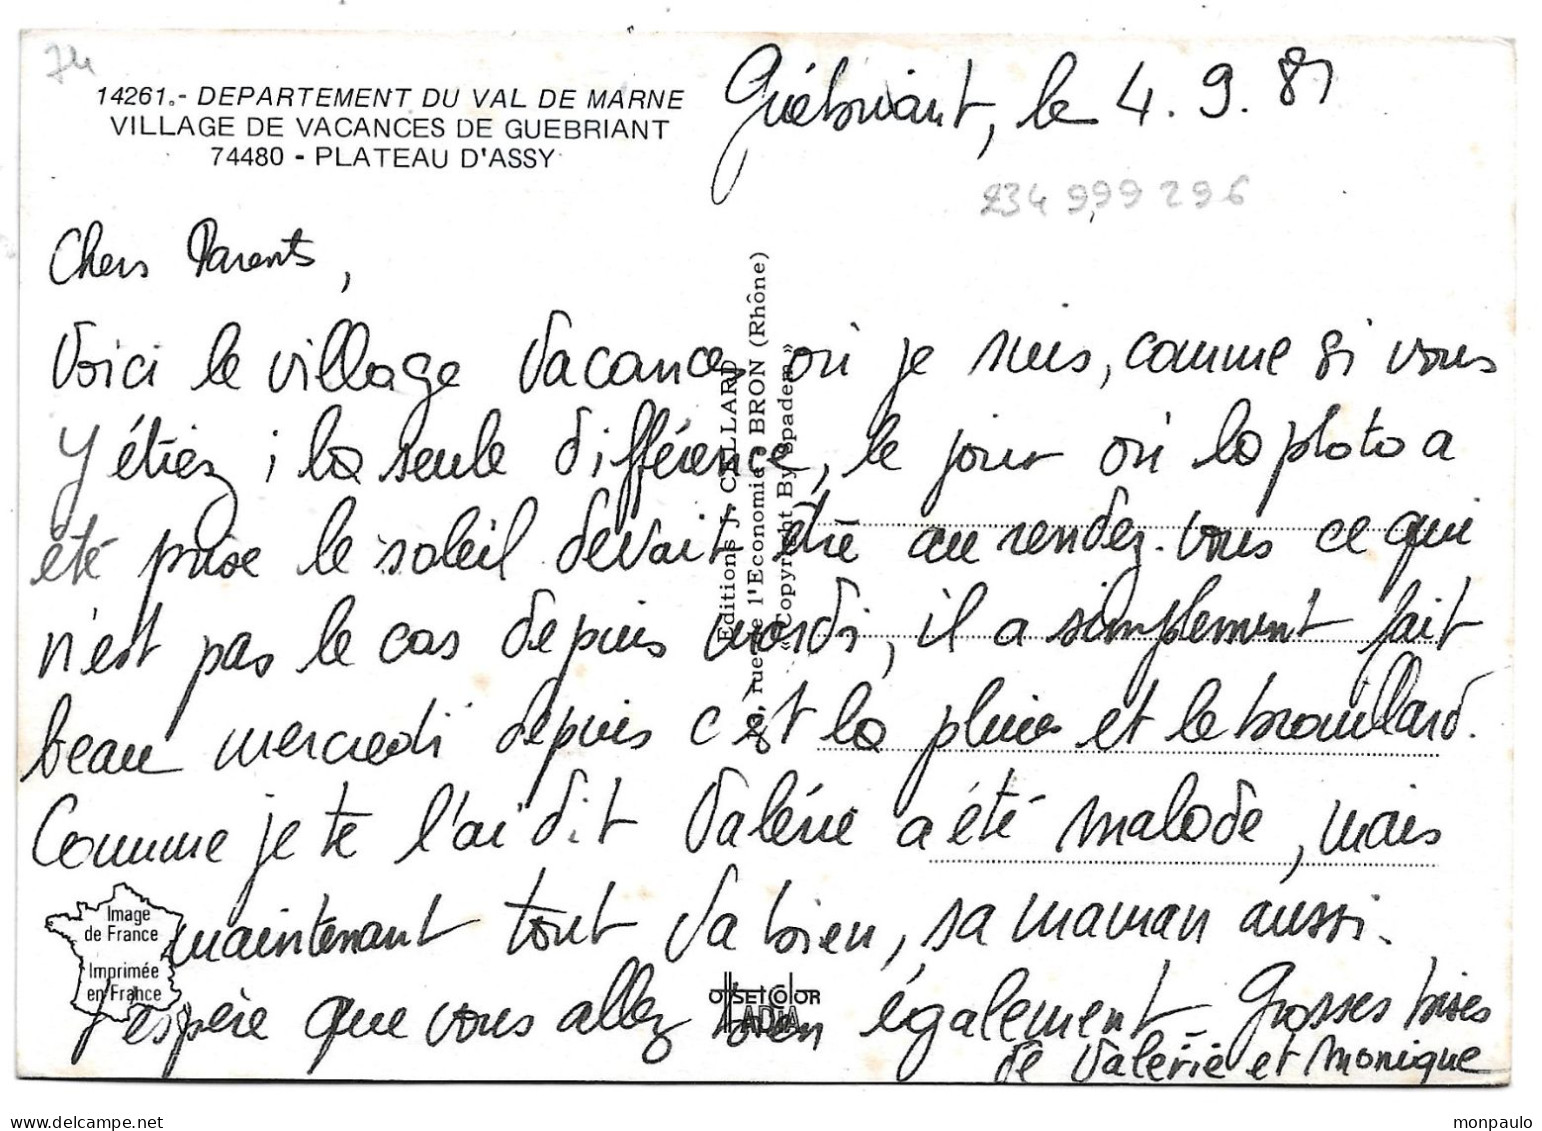 74
14261.- DEPARTEMENT DU VAL DE MARNE
VILLAGE DE VACANCES DE GUEBRIANT
74480 - PLATEAU D'ASSY
Guébriant, le 4.9.81
234 999 296
Chers Parents,
Voici le village Vacances où je suis, comme si vous
y étiez ; la seule différence, le jour où la photo a
été prise le soleil devait être au rendez-vous ce qui
n'est pas le cas depuis mardi, il a simplement fait
beau mercredi depuis c'est la pluie et le brouillard.
Comme je te l'ai dit Valérie a été malade, mais
maintenant tout va bien, sa maman aussi.
J'espère que vous allez bien également - Grosses bises
de Valérie et Monique
Editions J. CELLARD
rue de l'Economie BRON (Rhône)
«Copyright By Spadem»
Image
de France
Imprimée
en France
OFFSET COLOR
monpaulo